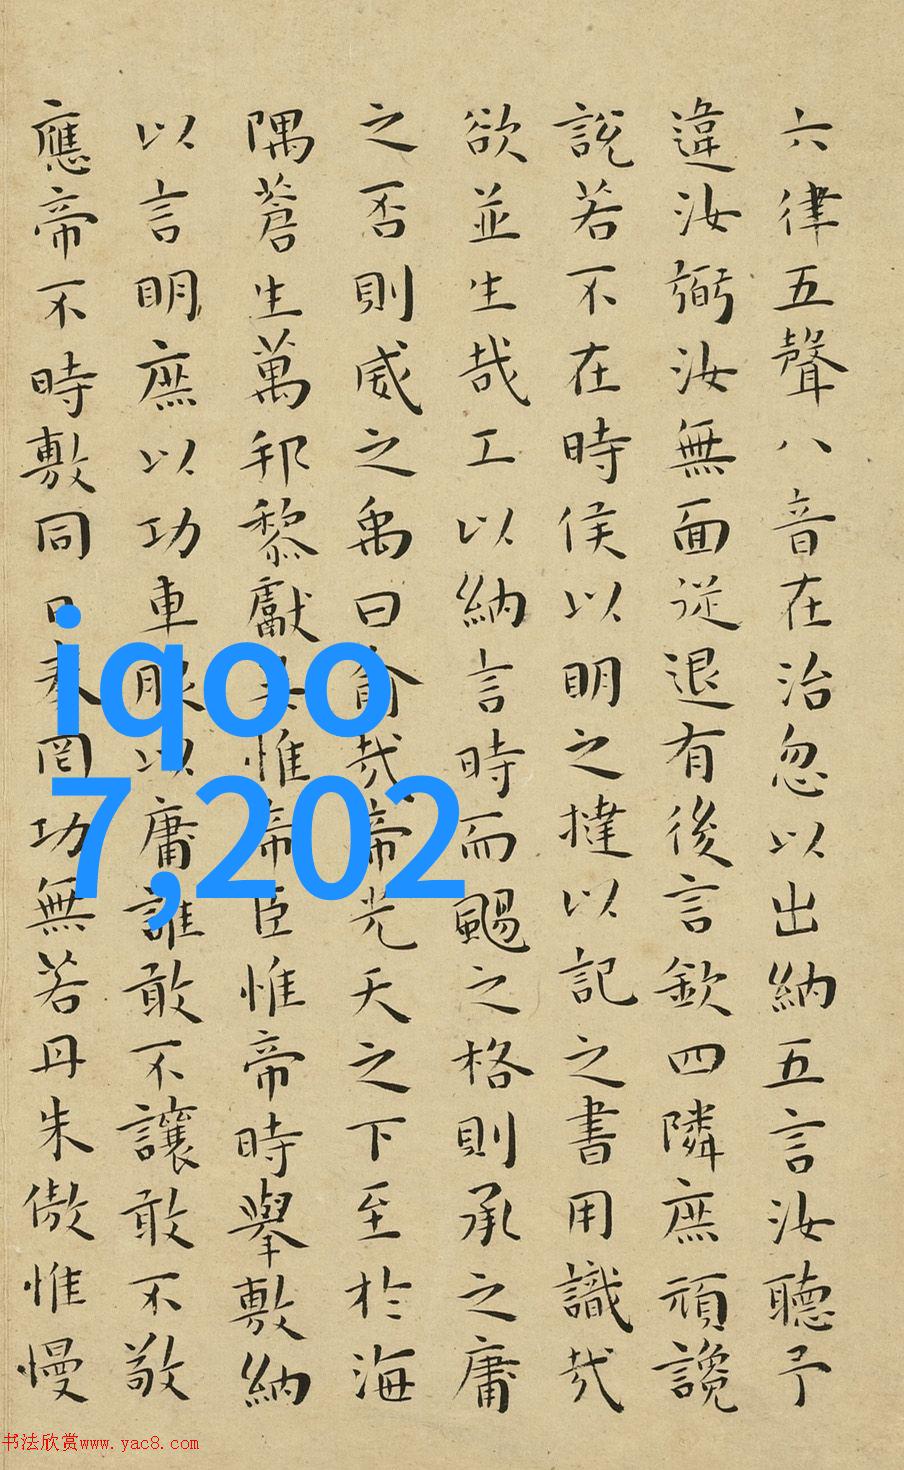 六律五聲八音在治忽以出納五言汝聽予
違汝弼汝無面從退有後言欽四隣庶頑讒
說若不在時侯以明之撻以記之書用識哉
欲並生哉工以納言時而颺之格則承之庸
之否則威之禹曰俞哉帝光天之下至於海
隅蒼生萬邦黎獻共惟帝臣惟帝時舉敷納
以言明庶以功車服以庸誰敢不讓敢不敬
應帝不時敷同日奏罔功無若丹朱傲惟慢
iqoo
7,202
书法欣赏www.yac8.com